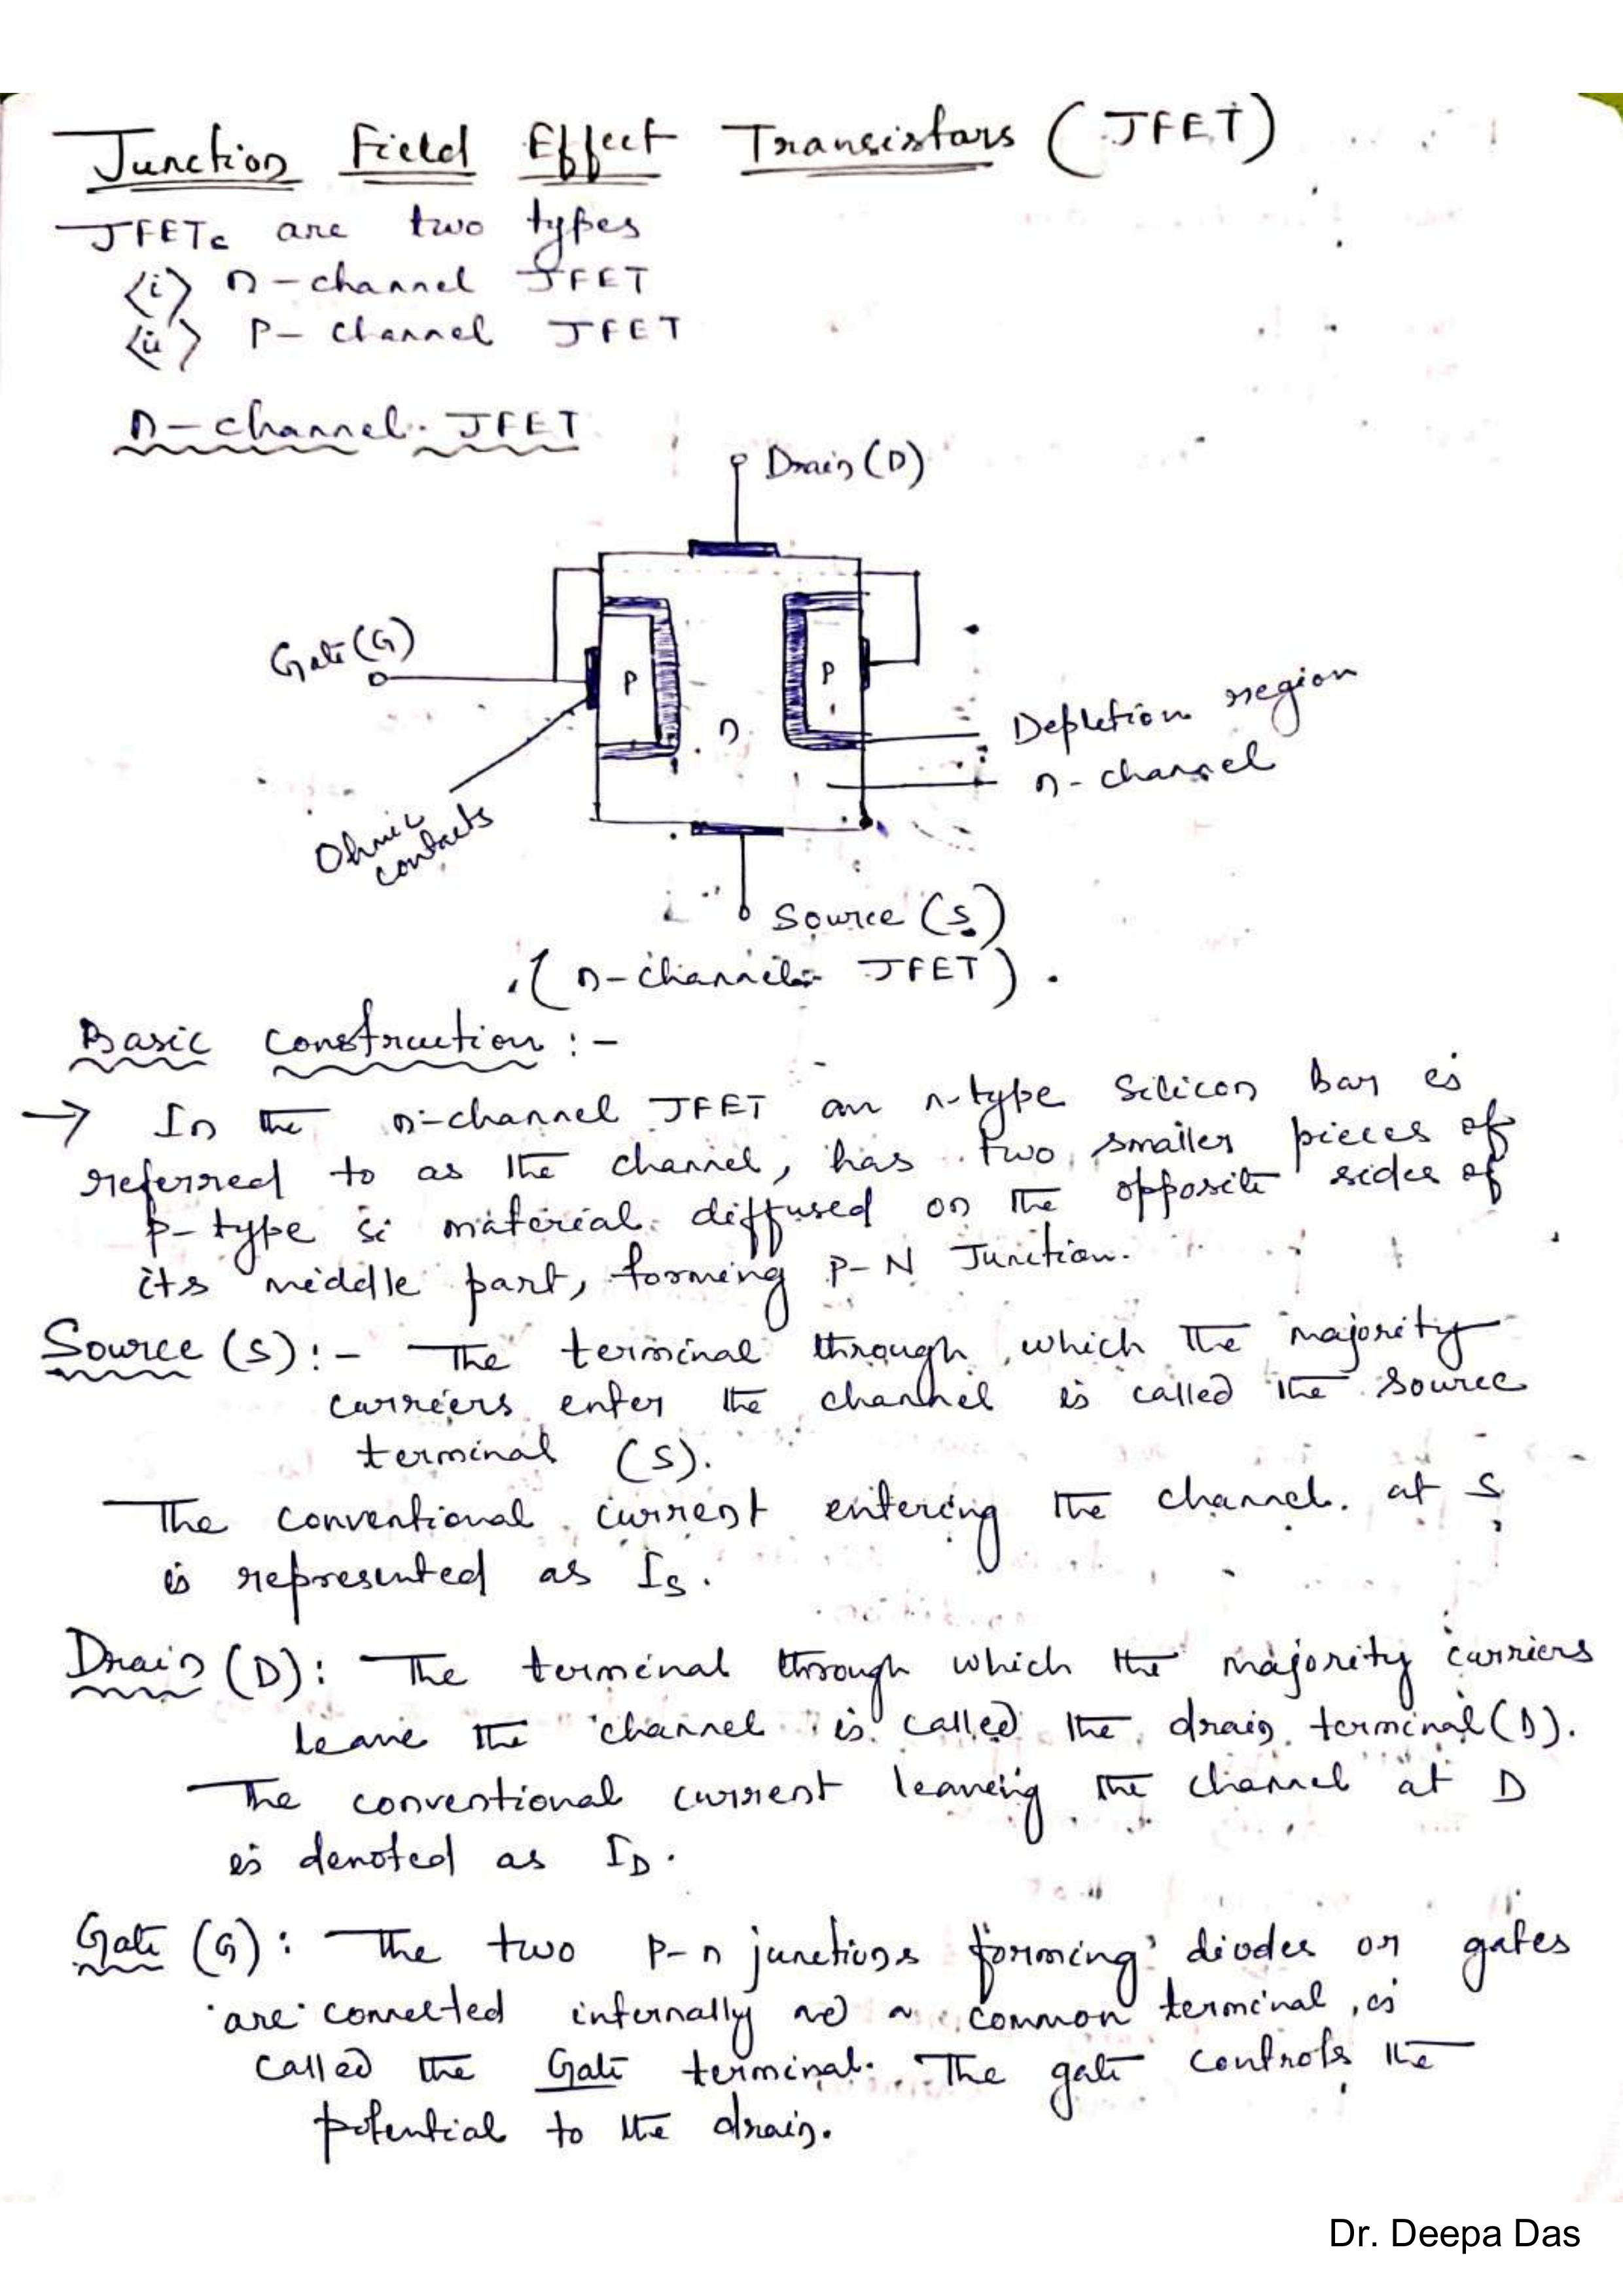 Junction Field Effect Transistors (JFET)
JFETs are two types
<i> n-channel JFET
<ii> P-channel JFET
n-channel JFET
Drain (D)
Gate (G)
P
P
n
Depletion region
n-channel
Ohmic
contacts
Source (S)
(n-channel JFET).
Basic construction :-
→ In the n-channel JFET an n-type silicon bar is
referred to as the channel, has two smaller pieces of
p-type si material diffused on the opposite sides of
its middle part, forming P-N Junction.
Source (S) :- The terminal through which the majority
carriers enter the channel is called the source
terminal (S).
The conventional current entering the channel at S
is represented as IS.
Drain (D) : The terminal through which the majority carriers
leave the channel is called the drain terminal (D).
The conventional current leaveing the channel at D
is denoted as ID.
Gate (G) : The two p-n junctions forming diodes or gates
are connected internally a common terminal, is
called the Gate terminal. The gate controls the
potential to the drain.
Dr. Deepa Das